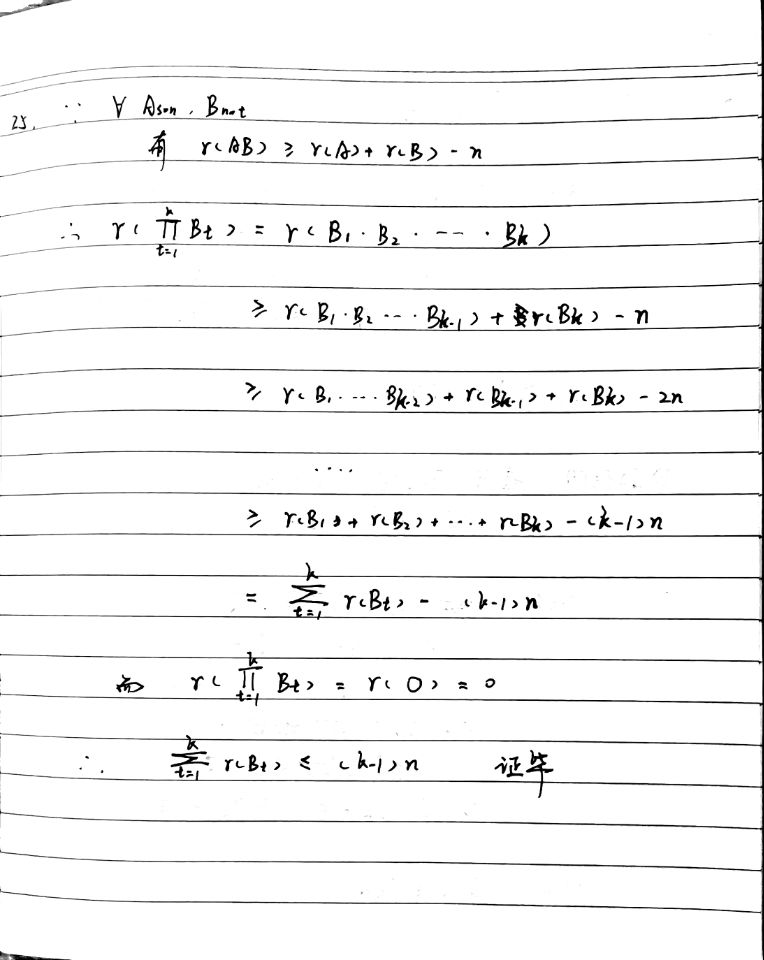 25. ∵ ∀ A_{s×n}, B_{n×t}
有 r(AB) ≥ r(A) + r(B) - n
∴ r(∏_{t=1}^{k} B_t) = r(B_1 · B_2 · --- · B_k)
≥ r(B_1 · B_2 --- · B_{k-1}) + r(B_k) - n
≥ r(B_1 · --- · B_{k-2}) + r(B_{k-1}) + r(B_k) - 2n
····
≥ r(B_1) + r(B_2) + ··· + r(B_k) - (k-1)n
= ∑_{t=1}^{k} r(B_t) - (k-1)n
而 r(∏_{t=1}^{k} B_t) = r(O) = 0
∴ ∑_{t=1}^{k} r(B_t) ≤ (k-1)n 证毕